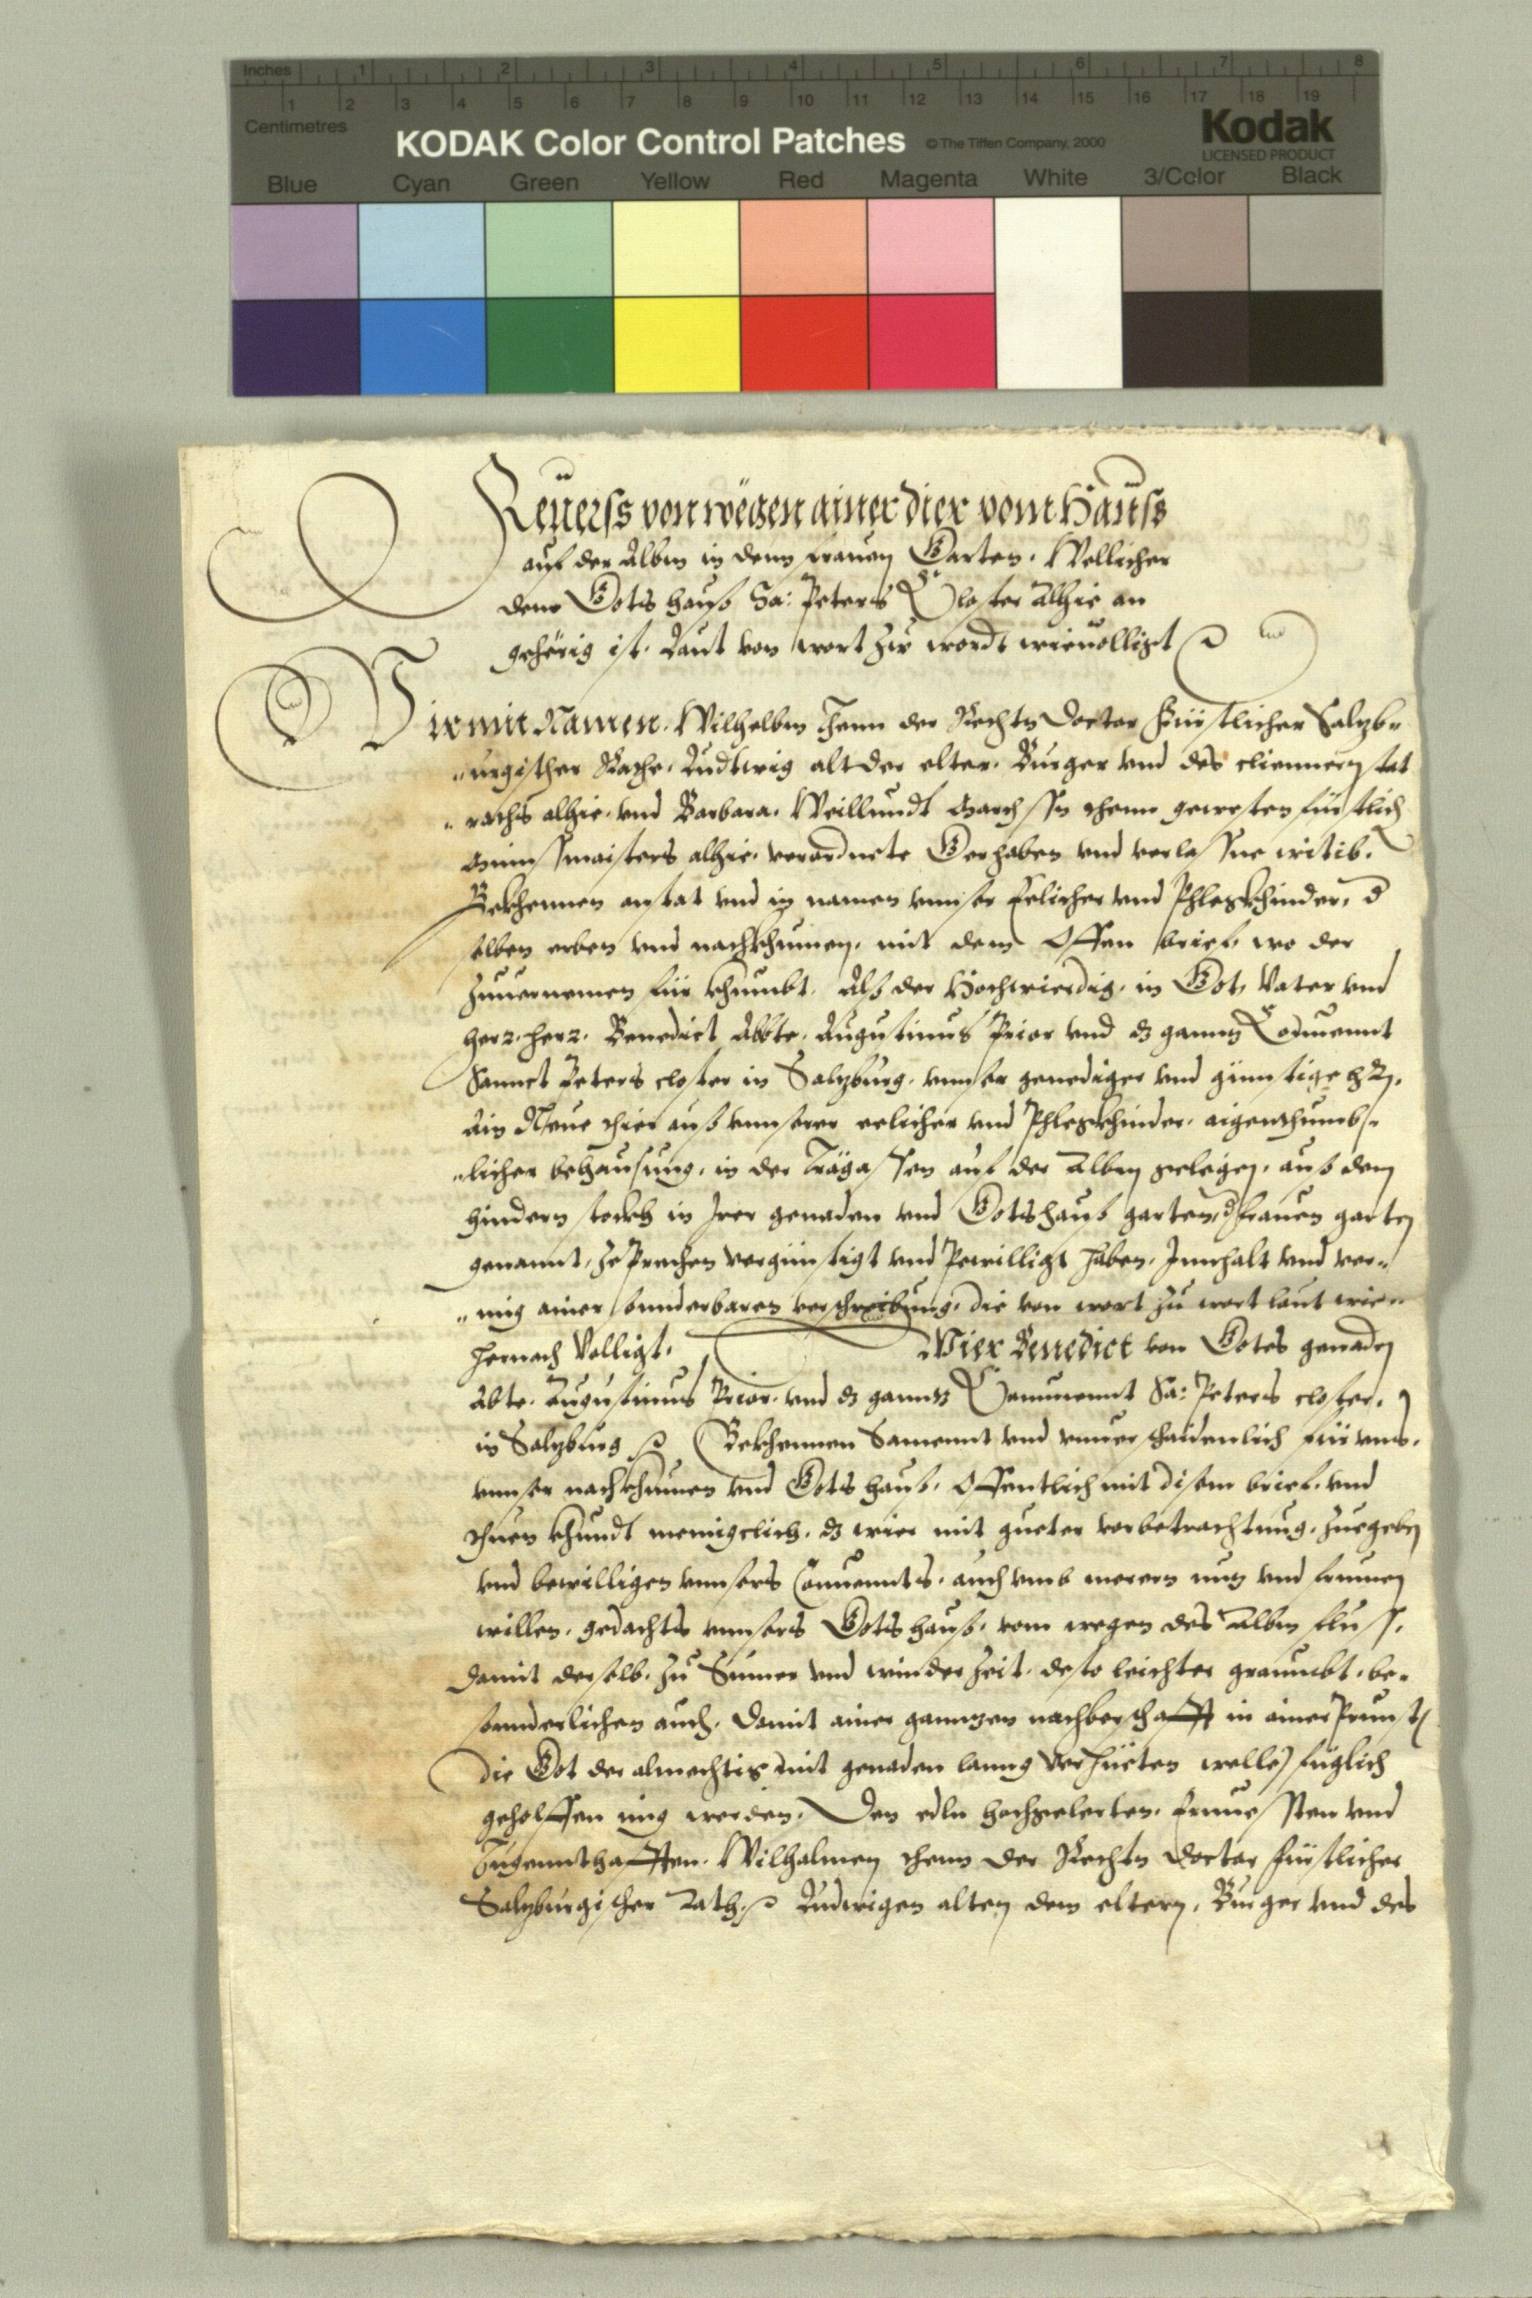 Inches 1 2 3 4 5 6 7 8
1 2 3 4 5 6 7 8 9 10 11 12 13 14 15 16 17 18 19
Centimetres
KODAK Color Control Patches © The Tiffen Company, 2000
Kodak
LICENSED PRODUCT
Blue Cyan Green Yellow Red Magenta White 3/Color Black
Reuerss von wegen ainer dier vom Hauss
auf der Albm in denn frauen Garten. Wellicher
dem Gotshauß Sa: Peters Closter Alhie an
gehörig ist. Laut von wort zw wordt wieuolligt
Wir mit Namen. Wilhelbm Thenn der Rechtn Doctor Fürstlicher Saltzb"
"urgischer Rathe. Ludtwig alt der elter. Burger vnd des
"raths alhie. vnd Barbara. Weillundt March Thenn gewesten fürstlich
münßmaisters alhie. verordnete Gerhaben vnd verlassne witib.
Bekhennen anstat vnd in namen vnnser Eelicher vnd Phlegkhinder. d
selben erben vnd nachkhumen. mit dem Offen brief. wo der
zuuernemen für khumbt. Alß der Hochwierdig. in Got Vater vnd
herr. herr. Benedict Abbte. Augustinus Prior vnd dz gannz Conuennt
Sannct Peters closter in Saltzburg. vnnser genediger vnd günstige
Ain Neue thier auß vnnserer eelicher vnd Phlegkhinder. aigenthumb"
"licher behausung. in der Trägassen auf der Albm gelegen. auß dem
hindern stockh in Irer genaden vnd Gotshauß garten, d frauen garten
genannt, zeprechen vergünstigt vnd Pewilligt haben. Innhalt vnd ver"
"mig ainer sunderbaren verschreibung. die von wort zu wort laut wie"
hernach Volligt. Wier Benedict von Gotes genaden
Abte. Augustinus Prior. vnd dz gannz Conuennt Sa: Peters closter.
in Saltzburg Bekhennen Samennt vnd vnuerschaidenlich für vnns.
vnnser nachkhumen vnd Gotshauß. Offentlich mit disem brief. vnd
thuen khundt menigclich. dz wier mit gueter vorbetrachtung. zuegeben
vnd bewilligen vnnsers Conuennts. auch vmb merern nuz vnd frumen
willen. gedachts vnnsers Gotshauß. vom wegen des Albm fluß.
Damit derselb. zu Sumer vnd winder zeit. desto leichter graumbt. be"
sonnderlichen auch. Damit ainer ganntzen nachberschafft in ainer Prunst
(die Got der almechtig mit genaden lanng verhüeten welle) füglich
geholffen mug werden. Den edln hochgelerten. Ernuessten vnd
Tugennthafften. Wilhalmen Thenn der Rechtn Doctor fürstlicher
Saltzburgischer Rath. Ludwigen alten dem eltern. Burger vnd des